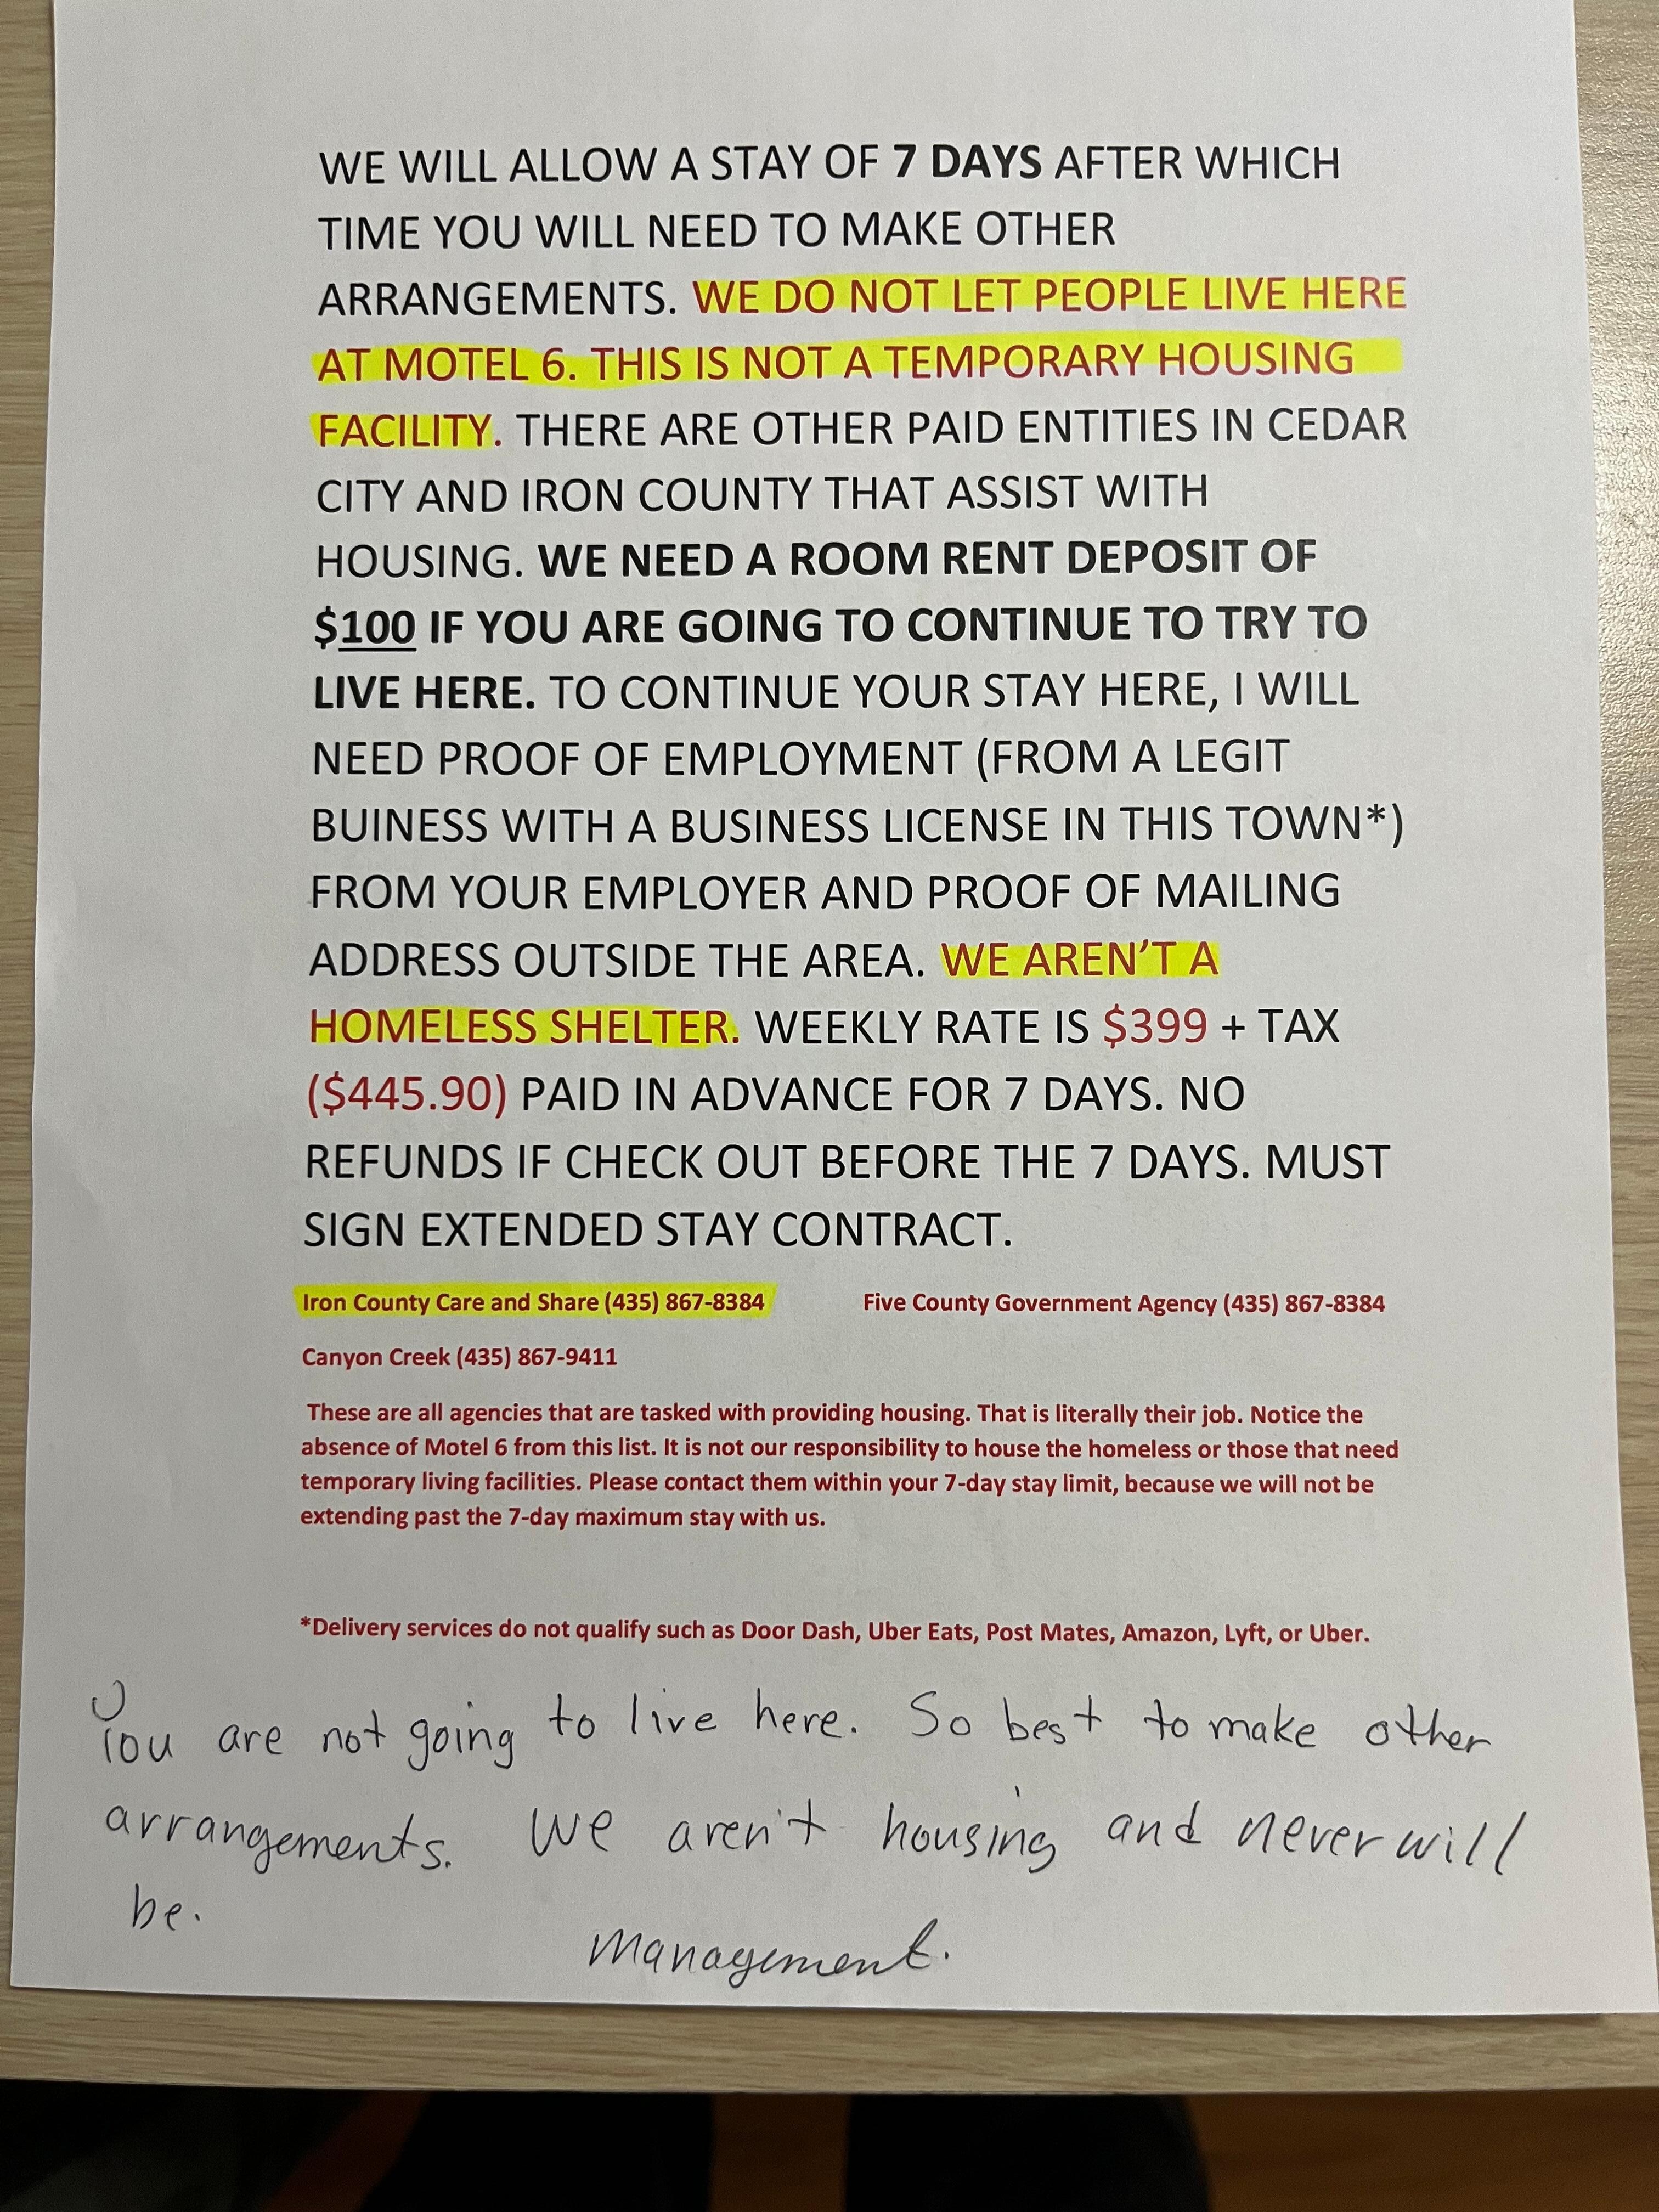 WE WILL ALLOW A STAY OF 7 DAYS AFTER WHICH
TIME YOU WILL NEED TO MAKE OTHER
ARRANGEMENTS. WE DO NOT LET PEOPLE LIVE HERE
AT MOTEL 6. THIS IS NOT A TEMPORARY HOUSING
FACILITY. THERE ARE OTHER PAID ENTITIES IN CEDAR
CITY AND IRON COUNTY THAT ASSIST WITH
HOUSING. WE NEED A ROOM RENT DEPOSIT OF
$100 IF YOU ARE GOING TO CONTINUE TO TRY TO
LIVE HERE. TO CONTINUE YOUR STAY HERE, I WILL
NEED PROOF OF EMPLOYMENT (FROM A LEGIT
BUINESS WITH A BUSINESS LICENSE IN THIS TOWN*)
FROM YOUR EMPLOYER AND PROOF OF MAILING
ADDRESS OUTSIDE THE AREA. WE AREN'T A
HOMELESS SHELTER. WEEKLY RATE IS $399 + TAX
($445.90) PAID IN ADVANCE FOR 7 DAYS. NO
REFUNDS IF CHECK OUT BEFORE THE 7 DAYS. MUST
SIGN EXTENDED STAY CONTRACT.
Iron County Care and Share (435) 867-8384 Five County Government Agency (435) 867-8384
Canyon Creek (435) 867-9411
These are all agencies that are tasked with providing housing. That is literally their job. Notice the
absence of Motel 6 from this list. It is not our responsibility to house the homeless or those that need
temporary living facilities. Please contact them within your 7-day stay limit, because we will not be
extending past the 7-day maximum stay with us.
*Delivery services do not qualify such as Door Dash, Uber Eats, Post Mates, Amazon, Lyft, or Uber.
You are not going to live here. So best to make other
arrangements. We aren't housing and never will
be.
Management.